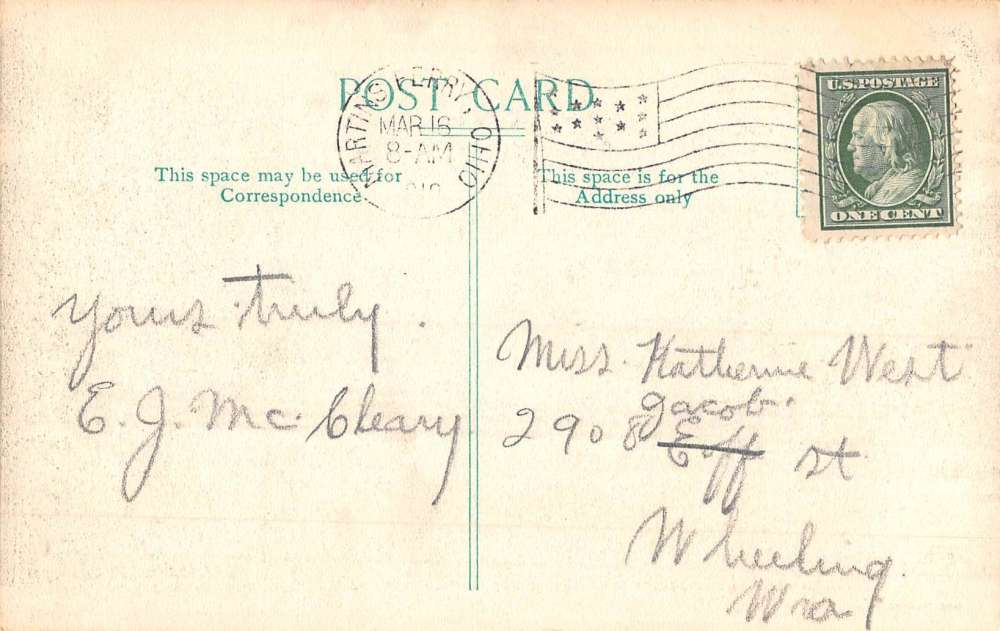 POST CARD
MARTINS FERRY, OHIO
MAR 16
8-AM
U.S. POSTAGE
ONE CENT
This space may be used for
Correspondence
This space is for the
Address only
Yours truly.
E. J. Mc. Cleary
Miss. Katherine West
Jacob.
2908 Eoff st
Wheeling.
Wva